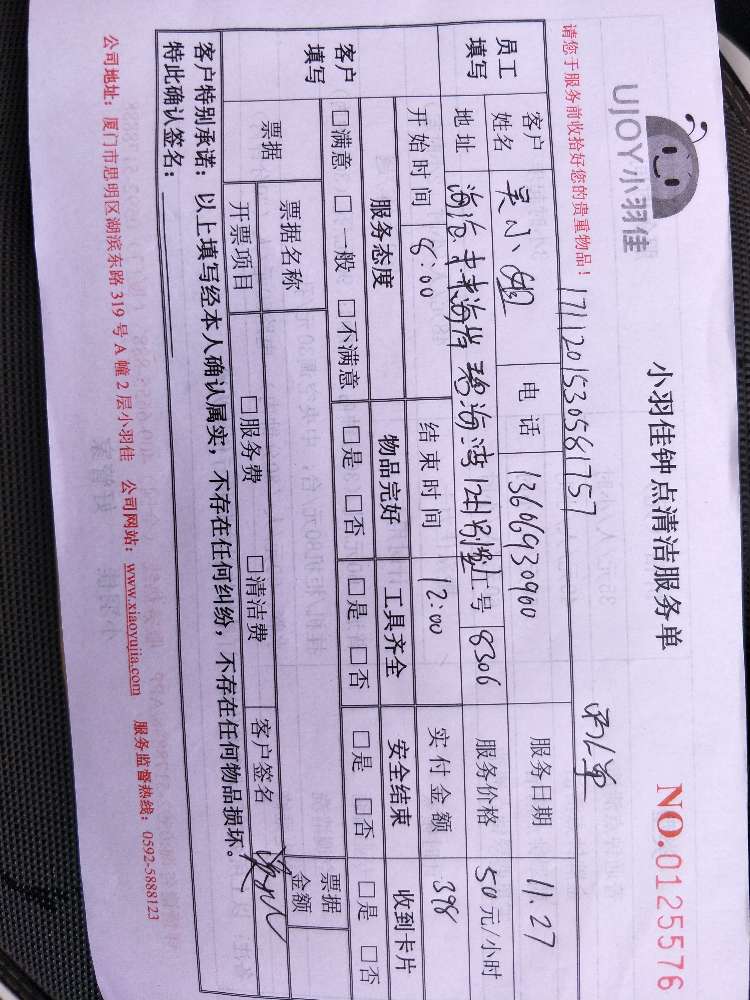 UJOY小羽佳
小羽佳钟点清洁服务单
NO.0125576
请您于服务前收拾好您的贵重物品！
1711201530581757
员工填写
客户姓名 吴小姐 电话 13606930900 服务日期 11.27
地址 海沧 海沧 碧海湾 工号 8306 服务价格 50元/小时
开始时间 8:00 结束时间 12:00 实付金额 398
客户填写
服务态度 物品完好 工具齐全 安全结束 收到卡片
□满意 □一般 □不满意 □是 □否 □是 □否 □是 □否 □是 □否
票据 票据名称 票据金额
开票项目 □服务费 □清洁费 客户签名
客户特别承诺：以上填写经本人确认属实，不存在任何纠纷，不存在任何物品损坏。
特此确认签名：
公司地址：厦门市思明区湖滨东路319号A幢2层小羽佳 公司网站：www.xiaoyujia.com 服务监督热线：0592-5888123